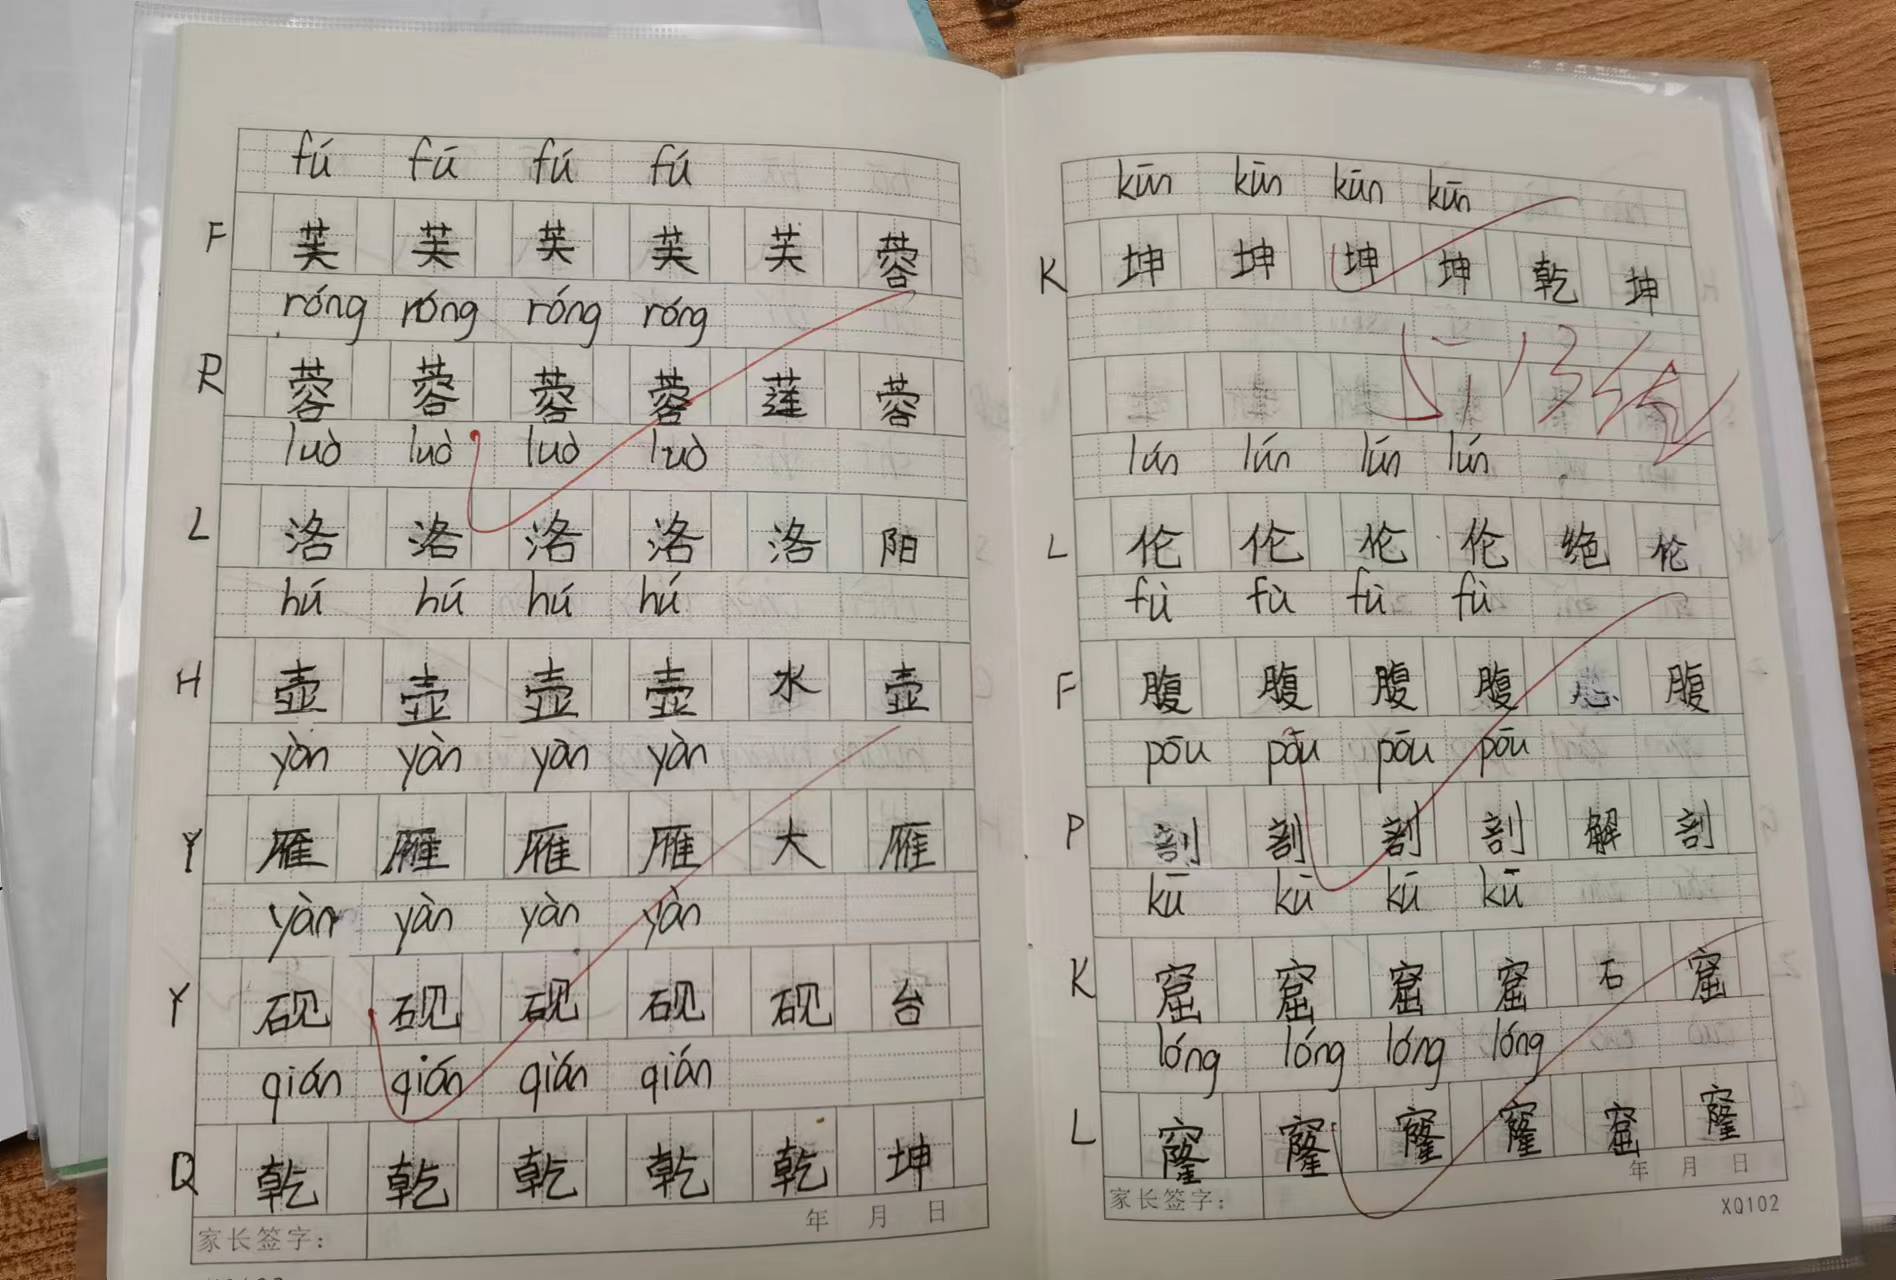 fú fú fú fú
F 芙 芙 芙 芙 芙 蓉
róng róng róng róng
R 蓉 蓉 蓉 蓉 莲 蓉
luò luò luò luò
L 洛 洛 洛 洛 洛 阳
hú hú hú hú
H 壶 壶 壶 壶 水 壶
yàn yàn yàn yàn
Y 雁 雁 雁 雁 大 雁
yàn yàn yàn yàn
Y 砚 砚 砚 砚 砚 台
qián qián qián qián
Q 乾 乾 乾 乾 乾 坤
家长签字： 年 月 日
kūn kūn kūn kūn
K 坤 坤 坤 坤 乾 坤
lún lún lún lún
L 伦 伦 伦 伦 绝 伦
fù fù fù fù
F 腹 腹 腹 腹 腹
pōu pōu pōu pōu
P 剖 剖 剖 剖 解 剖
kū kū kū kū
K 窟 窟 窟 窟 石 窟
lóng lóng lóng lóng
L 窿 窿 窿 窿 窟 窿
家长签字： 年 月 日
XQ102